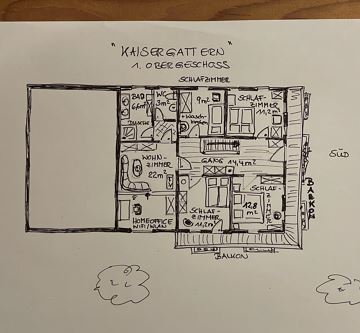 "KAISERGATTERN"
1. OBERGESCHOSS
SCHLAFZIMMER
BAD
6,6m²
DUSCHE
WC
3m²
9m²
+ Wasch-
SCHLAF-
ZIMMER
11,2m²
WOHN-
ZIMMER
22m²
TV
GANG 14,4m²
HOMEOFFICE
WIFI/WLAN
SCHLAF-
ZIMMER
11,2m²
SCHLAF-
ZIMMER
12,8
m²
BALKON
BALKON
SÜD